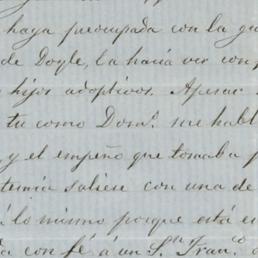 haya preocupada con la gu
de Doyle, la hacia ver con p
hijos adoptivos. Apesar
tu como Dom.º me habl
y el empeño que tomaba p
temia saliese con una de
lo mismo porque está e
con fé á un S.n Fran.co